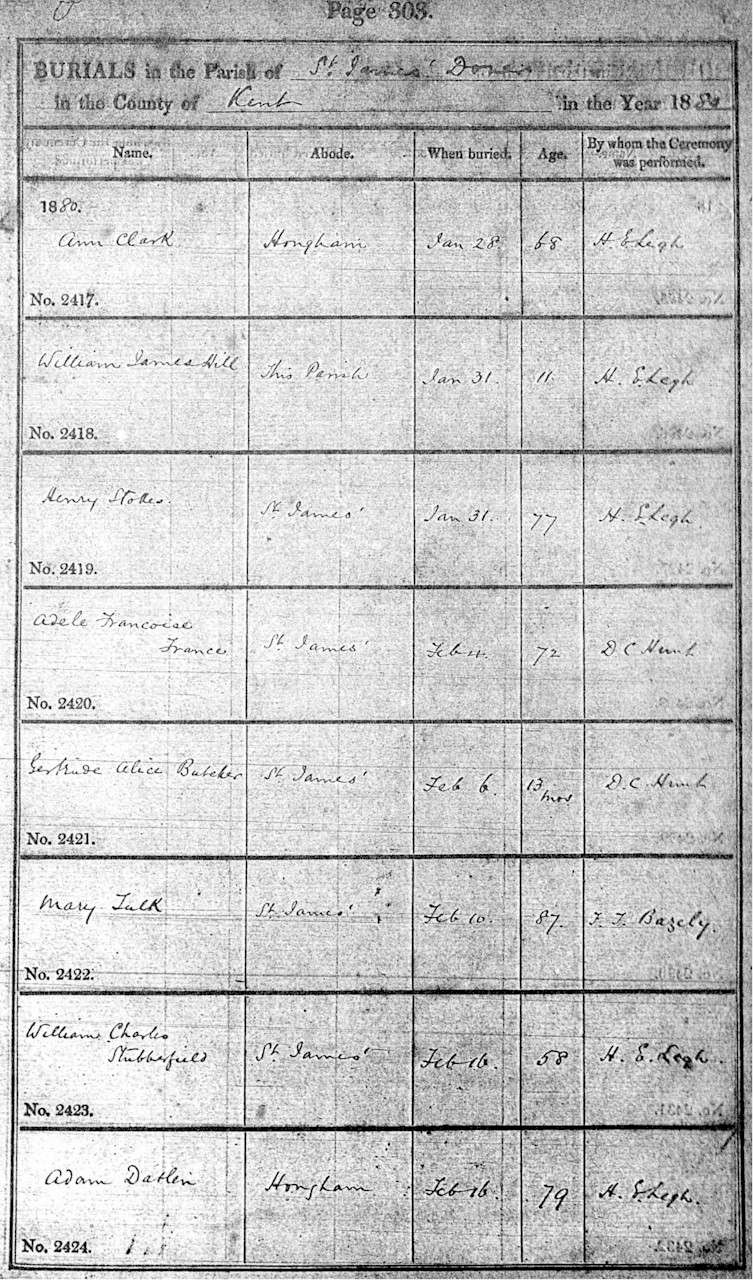 Page 303.
BURIALS in the Parish of St. James' Dover
in the County of Kent in the Year 1880
Name. Abode. When buried. Age. By whom the Ceremony was performed.
1880.
Ann Clark Hougham Jan 28 68 H. E Legh
No. 2417.
William James Hill This Parish Jan 31. 11 H. E Legh
No. 2418.
Henry Stokes. St. James' Jan 31. 77 H. E Legh
No. 2419.
Adele Francoise
France St. James' Feb 4. 72 D C Hunt
No. 2420.
Gertrude Alice Butcher St. James' Feb 6. 13 mos D. C. Hunt
No. 2421.
Mary Tulk St. James' Feb 10. 87. F. F. Bazely.
No. 2422.
William Charles
Stubberfield St. James' Feb 16. 58 H. E. Legh.
No. 2423.
Adam Hougham Feb 16. 79 H. E Legh.
No. 2424.